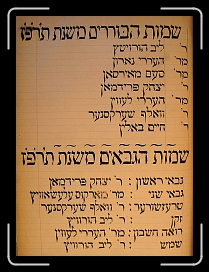 שמות הבוררים משנת תרפ"ז
ר' ליב הורוויטץ
מר' העררי גארון
מר' סעם מאירסאן
ר' יצחק פרידמאן
מר' העררי לעווין
ר' וואלף שערקסנער
ר' חיים באלין
שמות הגבאים משנת תרפ"ז
גבאי ראשון : ר' יצחק פרידמאן
גבאי שני : מר' מארקוס עלעשאוויץ
טרעזשורער : ר' וואלף שערקסנער
זקן : ר' ליב הורוויץ
רואה חשבון : מר' העררי לעווין
שמש : ר' ליב הורוויץ